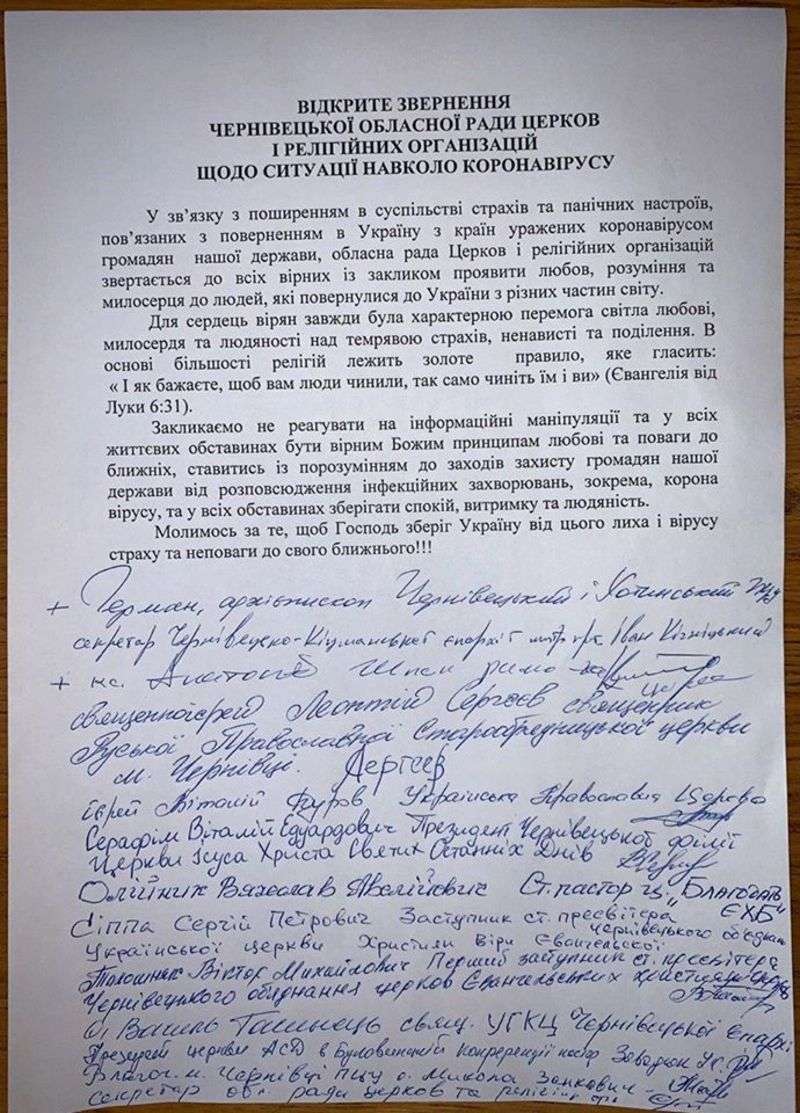 ВІДКРИТЕ ЗВЕРНЕННЯ
ЧЕРНІВЕЦЬКОЇ ОБЛАСНОЇ РАДИ ЦЕРКОВ
І РЕЛІГІЙНИХ ОРГАНІЗАЦІЙ
ЩОДО СИТУАЦІЇ НАВКОЛО КОРОНАВІРУСУ
У зв’язку з поширенням в суспільстві страхів та панічних настроїв,
пов’язаних з поверненням в Україну з країн уражених коронавірусом
громадян нашої держави, обласна рада Церков і релігійних організацій
звертається до всіх вірних із закликом проявити любов, розуміння та
милосерця до людей, які повернулися до України з різних частин світу.
Для сердець вірян завжди була характерною перемога світла любові,
милосердя та людяності над темрявою страхів, ненависті та поділення. В
основі більшості релігій лежить золоте правило, яке гласить:
« І як бажаєте, щоб вам люди чинили, так само чиніть їм і ви» (Євангелія від
Луки 6:31).
Закликаємо не реагувати на інформаційні маніпуляції та у всіх
життєвих обставинах бути вірним Божим принципам любові та поваги до
ближніх, ставитись із порозумінням до заходів захисту громадян нашої
держави від розповсюдження інфекційних захворювань, зокрема, корона
вірусу, та у всіх обставинах зберігати спокій, витримку та людяність.
Молимось за те, щоб Господь зберіг Україну від цього лиха і вірусу
страху та неповаги до свого ближнього!!!
+ Герман, архієпископ Чернівецький і Хотинський ПЦУ
секретар Чернівецько-Кіцманської єпархії Іван
+ кс. Анатолій Шпак римо-
священноієрей Леонтій Сергєєв священник
Руської Православної Старообрядницької церкви
м. Чернівці.
Ієрей Віталій Українська Православна Церква
Серафім Віталій Едуардович Президент Чернівецької філії
Церкви Ісуса Христа Святих Останніх Днів
Олійник Вячеслав Ст. пастор ц. „Благодать
ЄХБ“
Сіппа Сергій Петрович Заступник ст. пресвітера
Чернівецького
Української церкви Християн Віри Євангельської
Віктор Михайлович Перший заступник ст. пресвітера
Чернівецького обєднання церков Євангельських християн
О. Василь свящ. УГКЦ Чернівецької Єпархії
церкви АСД в Буковинській конференції
Благоч. м. Чернівці ПЦУ о. Микола
Секретар обл. ради церков та